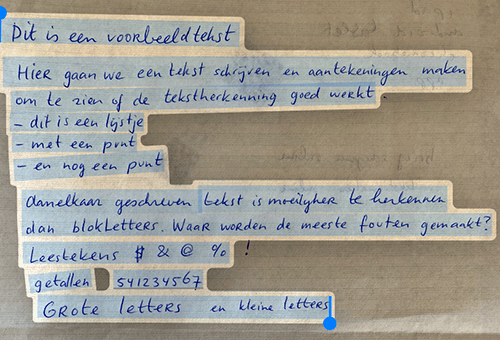 Dit is een voorbeeldtekst
Hier gaan we een tekst schrijven en aantekeningen maken
om te zien of de tekstherkenning goed werkt.
- dit is een lijstje
- met een punt
- en nog een punt
Aanelkaar geschreven tekst is moeilyker te herkennen
dan blokletters. Waar worden de meeste fouten gemaakt?
Leestekens $ & @ % !
getallen 541234567
GROTE letters en kleine letters